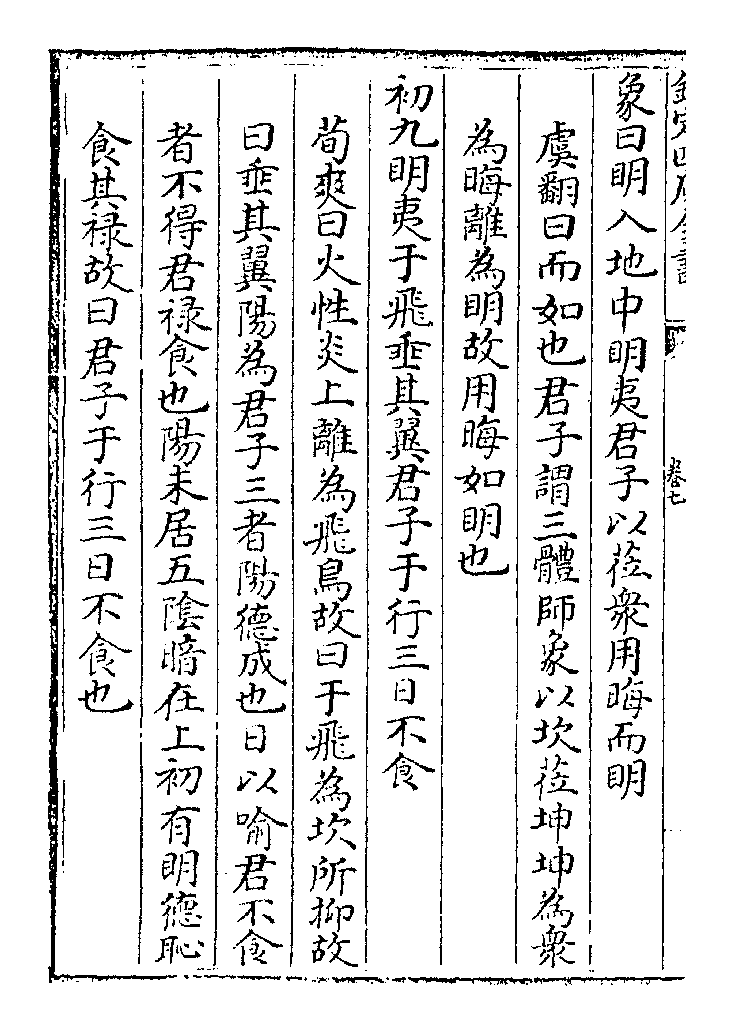 欽定四庫全書
卷七
象曰明入地中明夷君子以莅衆用晦而明
虞翻曰而如也君子謂三體師象以坎莅坤坤為衆
為晦離為明故用晦如明也
初九明夷于飛垂其翼君子于行三日不食
荀爽曰火性炎上離為飛鳥故曰于飛為坎所抑故
曰垂其翼陽為君子三者陽德成也日以喻君不食
者不得君禄食也陽未居五陰暗在上初有明德恥
食其禄故曰君子于行三日不食也